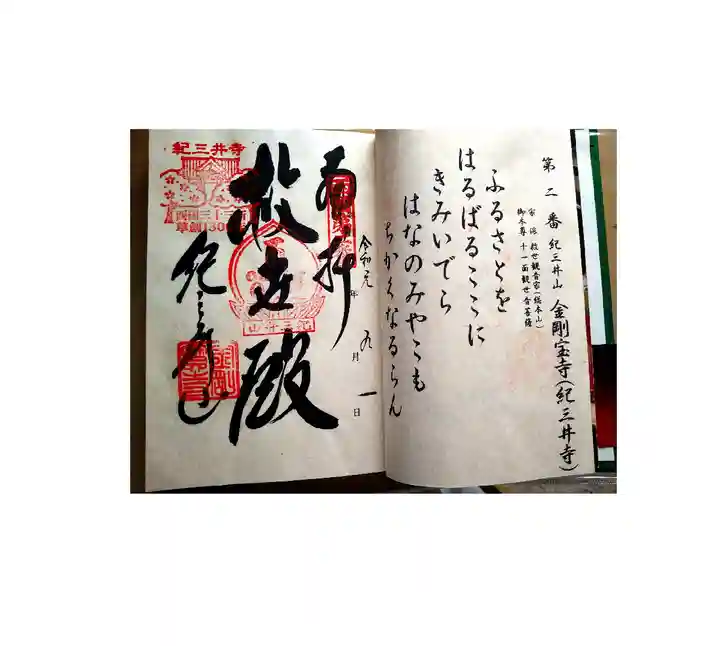 第二番 紀三井山 金剛宝寺(紀三井寺)
宗派 救世観音宗(総本山)
御本尊 十一面観世音菩薩
ふるさとを
はるばるここに
きみいでら
はなのみやこも
ちかくなるらん
令和元年九月一日
奉拝
救世殿
紀三井山
紀三井寺
西国三十三所
草創1300年
紀三井山